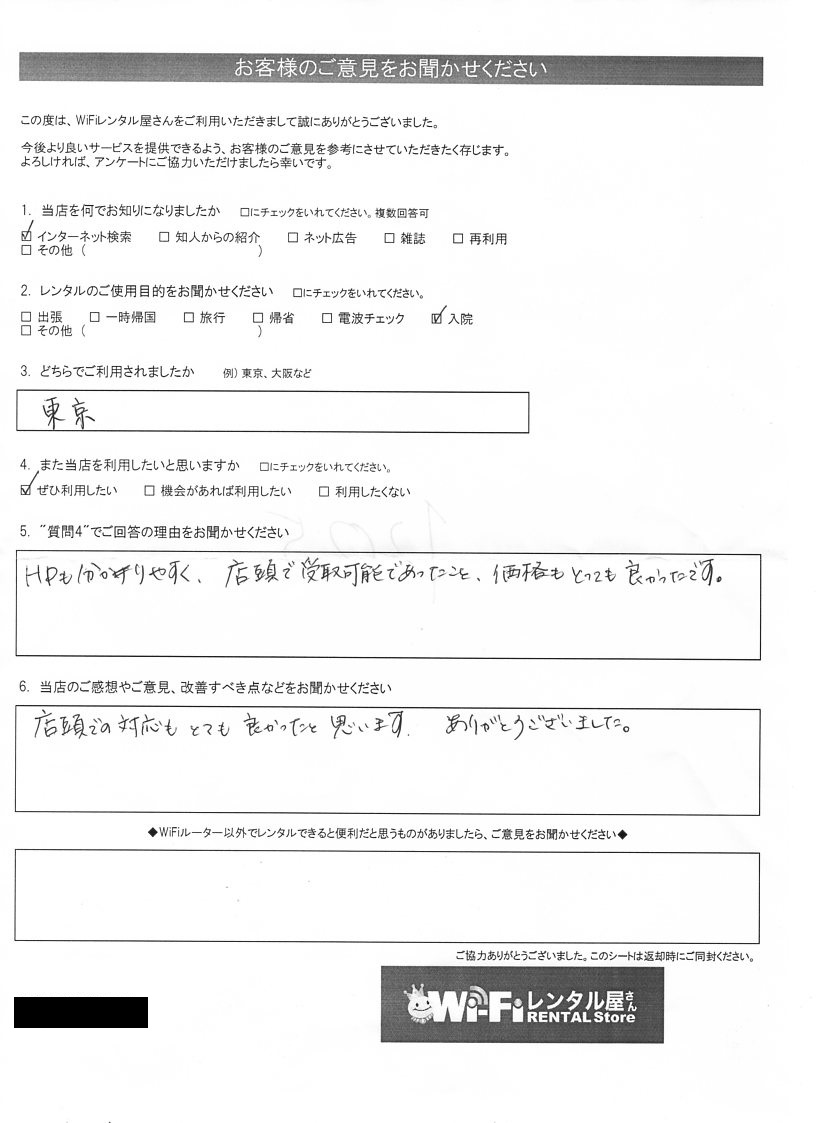 お客様のご意見をお聞かせください
この度は、WiFiレンタル屋さんをご利用いただきまして誠にありがとうございました。
今後より良いサービスを提供できるよう、お客様のご意見を参考にさせていただきたく存じます。
よろしければ、アンケートにご協力いただけましたら幸いです。
1. 当店を何でお知りになりましたか □にチェックをいれてください。複数回答可
☑ インターネット検索 □ 知人からの紹介 □ ネット広告 □ 雑誌 □ 再利用
□ その他 ( )
2. レンタルのご使用目的をお聞かせください □にチェックをいれてください。
□ 出張 □ 一時帰国 □ 旅行 □ 帰省 □ 電波チェック ☑ 入院
□ その他 ( )
3. どちらでご利用されましたか 例) 東京、大阪など
東京
4. また当店を利用したいと思いますか □にチェックをいれてください。
☑ ぜひ利用したい □ 機会があれば利用したい □ 利用したくない
5. "質問4"でご回答の理由をお聞かせください
HPも分かりやすく、店頭で受取可能であったこと、価格もとっても良かったです。
6. 当店のご感想やご意見、改善すべき点などをお聞かせください
店頭での対応もとても良かったと思います。ありがとうございました。
◆WiFiルーター以外でレンタルできると便利だと思うものがありましたら、ご意見をお聞かせください◆
ご協力ありがとうございました。このシートは返却時にご同封ください。
Wi-Fiレンタル屋さん
RENTAL Store